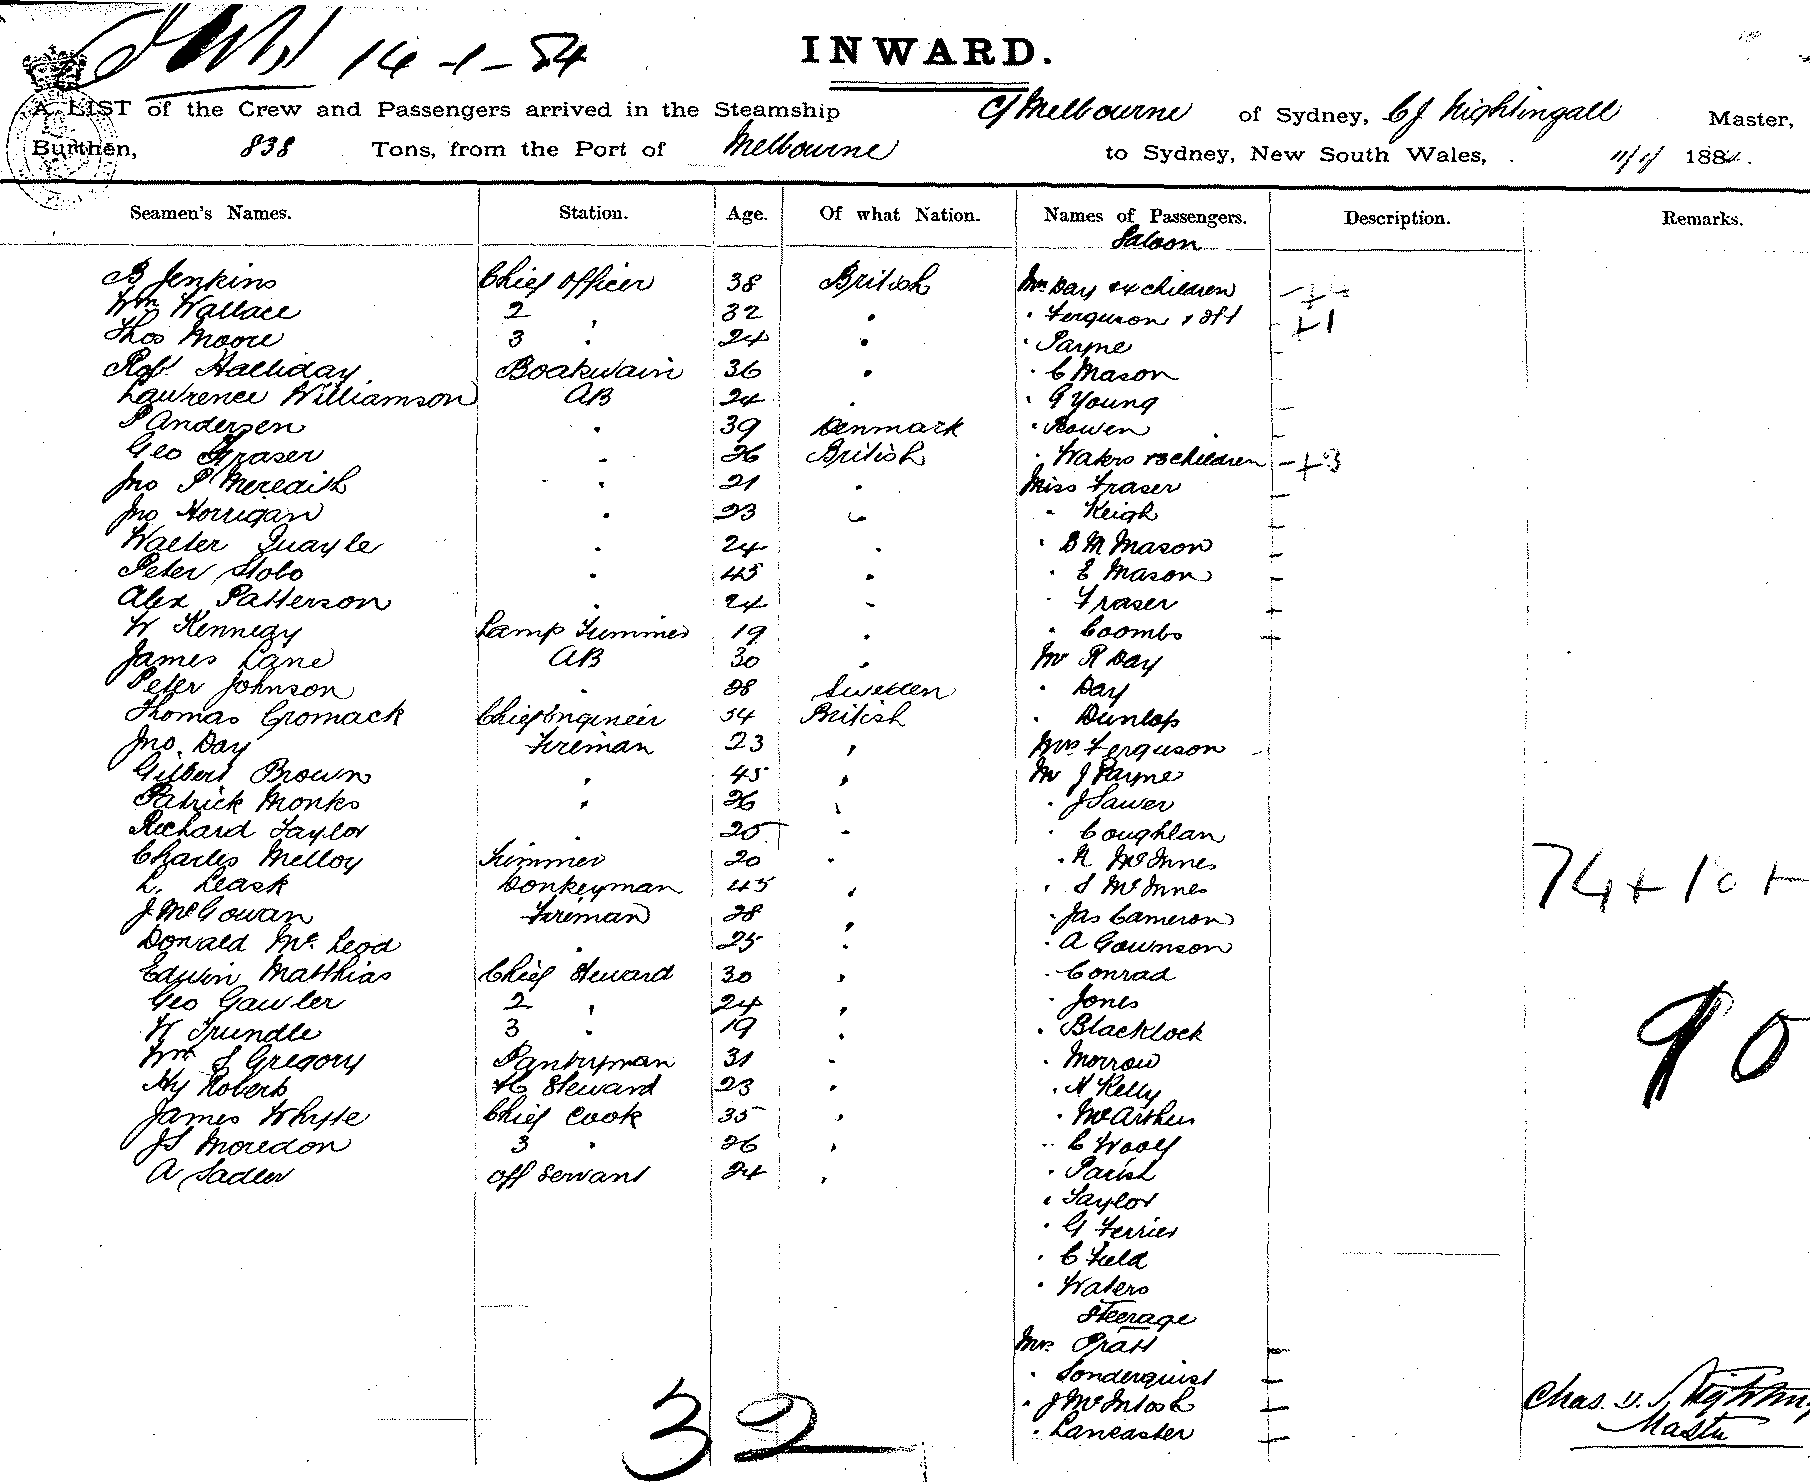 14-1-84
INWARD.
A LIST of the Crew and Passengers arrived in the Steamship C/Melbourne of Sydney, CJ Nightingall Master,
Burthen, 838 Tons, from the Port of Melbourne to Sydney, New South Wales, 11/1/ 1884.
Seamen's Names. Station. Age. Of what Nation. Names of Passengers. Description. Remarks.
Saloon
B Jenkins Chief Officer 38 British Mrs Day & 4 children
Wm Wallace 2 " 32 " " Ferguson & +1
Thos Moore 3 " 24 " " Payne
Robt Halliday Boatswain 36 " " C Mason
Lawrence Williamson AB 24 " " G Young
P Andersen " 39 Denmark " Bowen
Geo Fraser " 26 British " Waters & 3 children +3
Jno P Meredith " 21 " Miss Fraser
Jno Horrigan " 23 " " Keigh
Walter Quayle " 24 " " B M Mason
Peter Stobo " 45 " " E Mason
Alex Patterson " 24 " " Fraser
W Kennedy Lamp Trimmer 19 " " Coombs
James Lane AB 30 " Mr R Day
Peter Johnson " 28 Sweden " Day
Thomas Cromack Chief Engineer 54 British " Dunlop
Jno. Day Fireman 23 " Mrs Ferguson
Gilbert Brown " 45 " Mr J Payne
Patrick Monks " 26 " " J Sawer
Richard Taylor " 25 " " Coughlan
Charles Melloy Trimmer 20 " " R McInnes
L. Leask Donkeyman 45 " " S McInnes
J. McGowan Fireman 28 " " Jas Cameron
Donald McLeod " 25 " " A Gawnson
Edwin Matthias Chief Steward 30 " " Conrad
Geo Gawler 2 " 24 " " Jones
W Trundle 3 " 19 " " Blacklock
Wm S Gregory Pantryman 31 " " Morrow
Hy Roberts Steward 23 " " H Kelly
James Whyte Chief Cook 35 " " McArthur
JS Moredon 3 " 26 " " C Woolf
A Sadler Off Servant 24 " " Parish
" Taylor
" G Ferrier
" C Field
" Waters
Steerage
Mrs Pratt
" Sonderquist
" J McIntosh
" Lancaster
74 + 10 +
90
32
Chas. Master